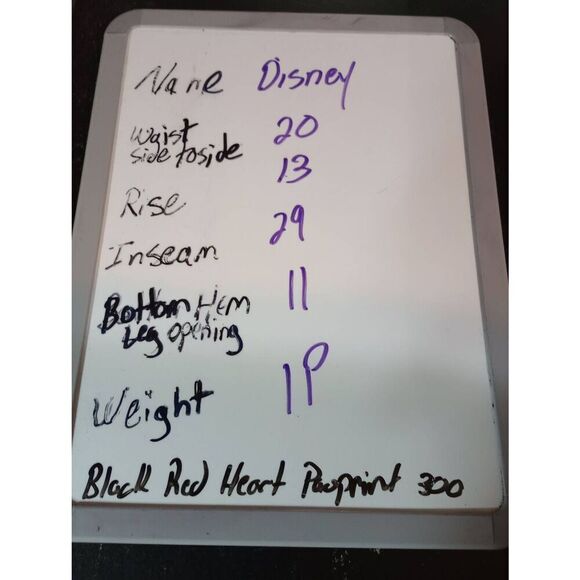 Name Disney
Waist 20
side to side
Rise 13
Inseam 29
Bottom Hem 11
Leg opening
Weight 1P
Black Red Heart Pawprint 300